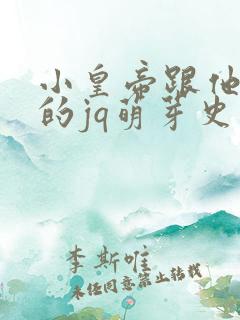 小皇帝跟他
的jq萌芽史
李斯唯
未经同意禁止转载